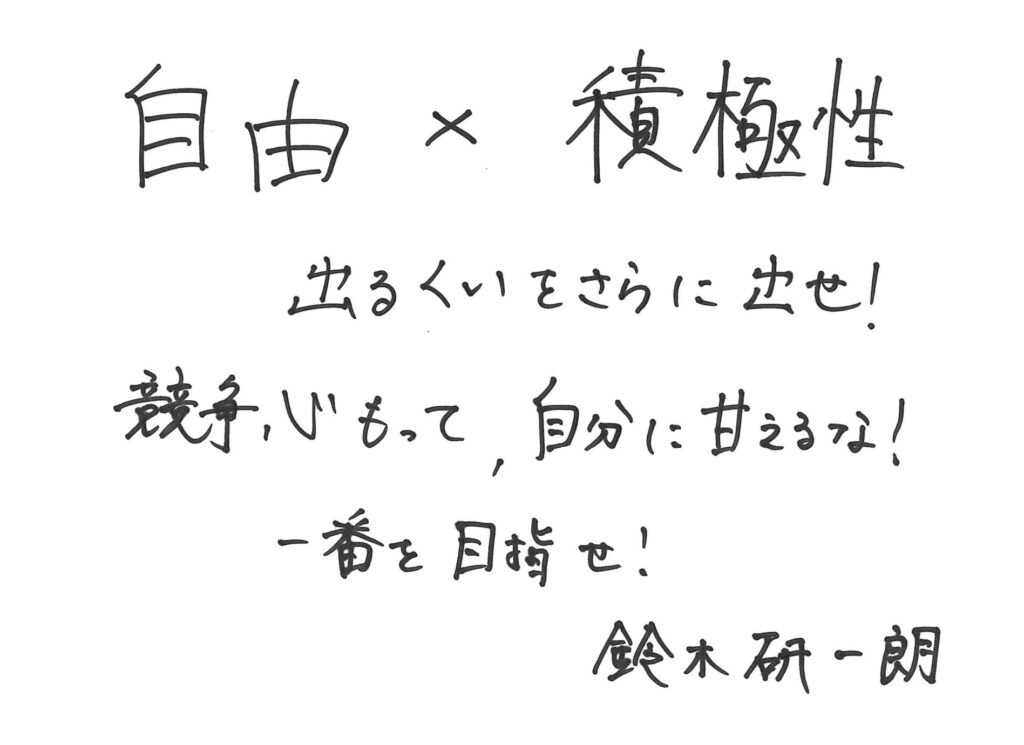 自由 × 積極性
出るくいをさらに出せ!
競争心もって, 自分に甘えるな!
一番を目指せ!
鈴木研一朗